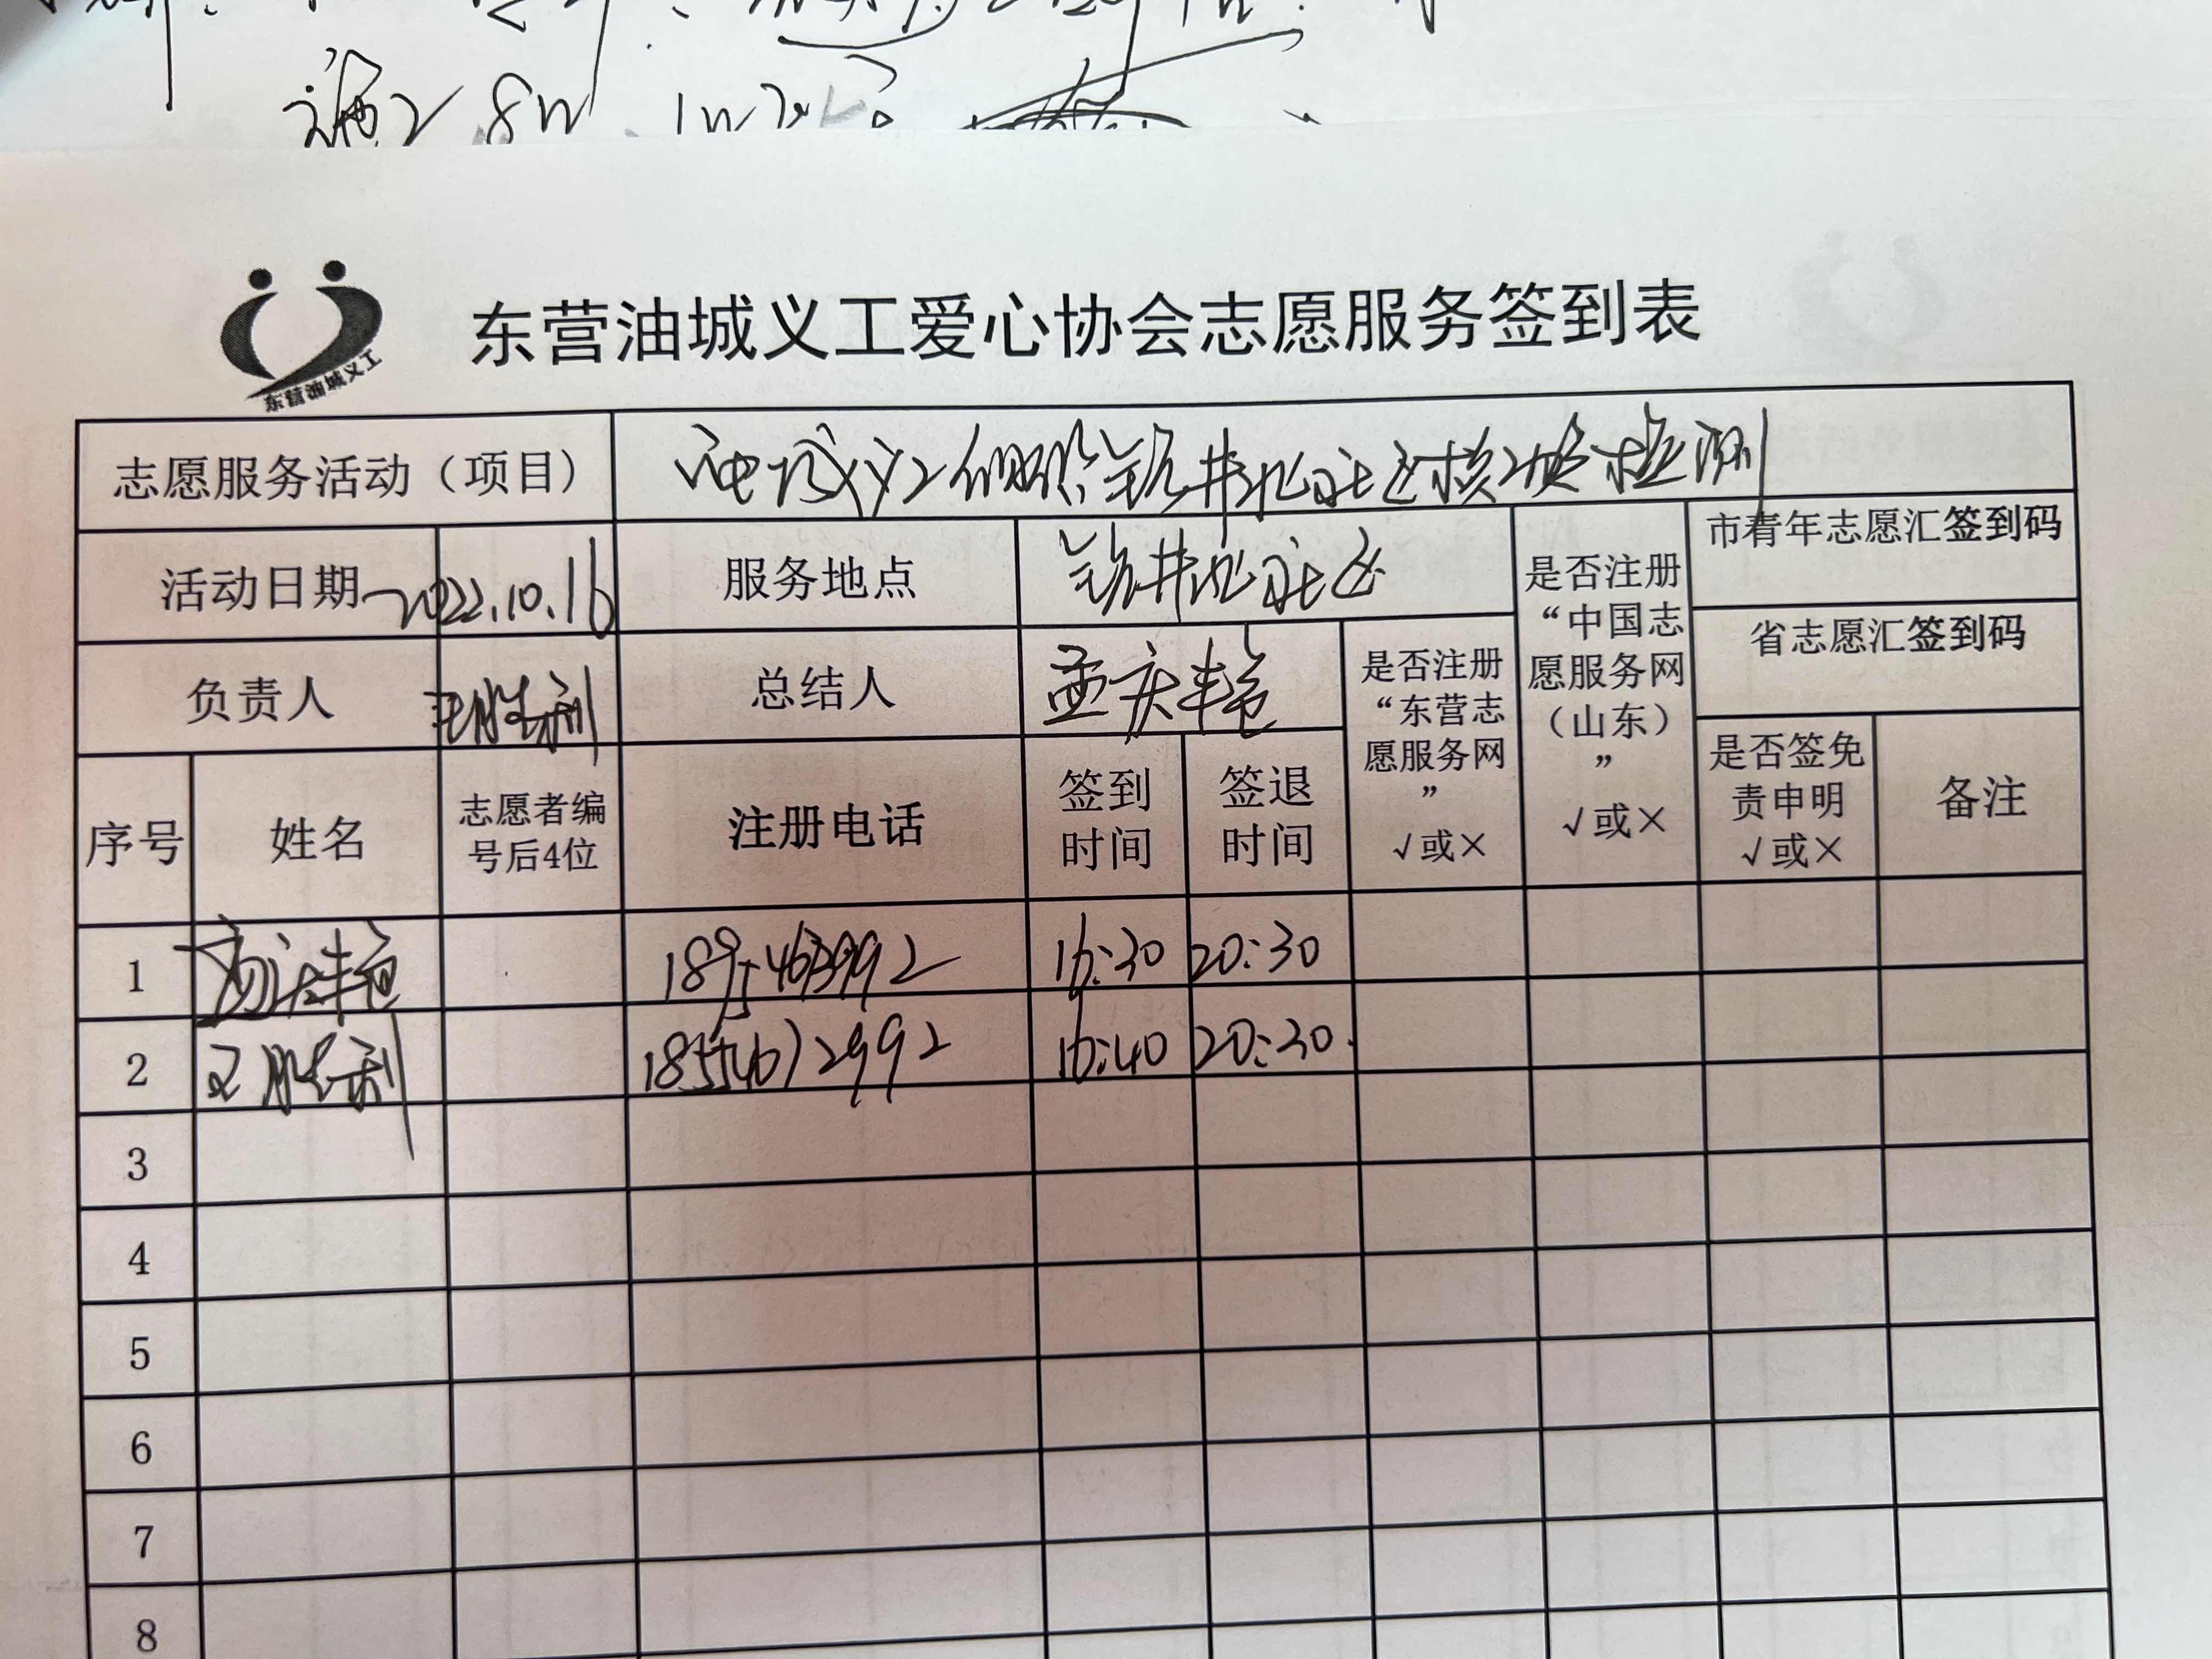 东营油城义工
东营油城义工爱心协会志愿服务签到表
志愿服务活动（项目） 油城义工们服务钻井北社区核酸检测
活动日期 2022.10.16 服务地点 钻井北社区 是否注册“中国志愿服务网（山东）” √或× 市青年志愿汇签到码
省志愿汇签到码
负责人 王胜利 总结人 孟庆艳 是否注册“东营志愿服务网” √或×
序号 姓名 志愿者编号后4位 注册电话 签到时间 签退时间 是否签免责申明 √或× 备注
1 孟庆艳 16:30 20:30
2 王胜利 18554612992 16:40 20:30
3
4
5
6
7
8